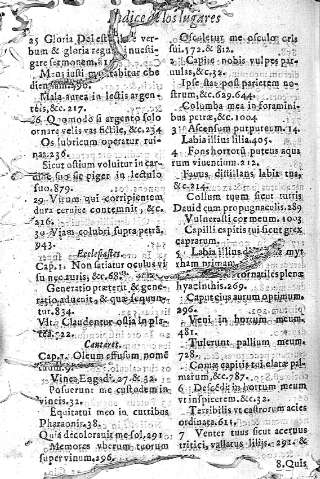 Indice de los lugares
25 Gloria Dei est ver-
bum & gloria regum inuesti-
gare sermonem.
dientiam.496.
Mala aurea in lectis argen-
teis, &c.217.
26 Quomodo si argento solo
ornare velis vas fictile, &c.234
Os lubricum operatur rui-
nas.236.
Sicut ostium voluitur in car-
dine suo sic piger in lectulo
suo.879.
29 Virum qui corripientem
dura ceruice contemnit, &c.
216.
30 Viam colubri supra petrã,
943.
Ecclesiastes.
Cap.1. Non satiatur oculus vi
su nec auris, &c.68.
Generatio præterit & gene-
ratio aduenit, & quæ sequun-
tur.834.
Vlt. Claudentur ostia in pla-
tea.722.
Cantares.
Cap.1. Oleum effusum nomẽ
tuum.
Vinea Engadi.27.& 32.
Posuerunt me custodem in
vineis.32.
Equitatui meo in curribus
Pharaonis.38.
Quia decolorauit me sol,291
Memores vberum tuorum
super vinum.296.
Osculetur me osculo oris
sui.172.& 812.
Capite nobis vulpes par-
uulas, &c.32.
Ipse stat post parietem no-
strum, &c.629.644.
Columba mea in foramini-
bus petræ, &c.1004
3 Ascensum purpureum.14.
Labia illius lilia.405.
4 Fons hortorũ puteus aqua
rum viuentium.212.
Fauus distillans labia tua,
&c.214.
Collum tuum sicut turris
Dauid cum propugnaculis.289
Vulnerasti cor meum.103
Capilli capitis tui sicut grex
caprarum.
5 Labia illius
rham primam.
plenæ
hyacinthis.269.
Caput eius aurum optimum.
296.
Veni in hortum meum.
481.
Tulerunt pallium meum.
728.
Comæ capitis tui elatæ pal-
marum, &c.787.
6 Descẽdi in hortum meum
vt inspicerem.&c.32.
Terribilis vt castrorum acies
ordinata.611.
7 Venter tuus sicut aceruus
tritici, vallatus lilijs. 292. &
8.Quis